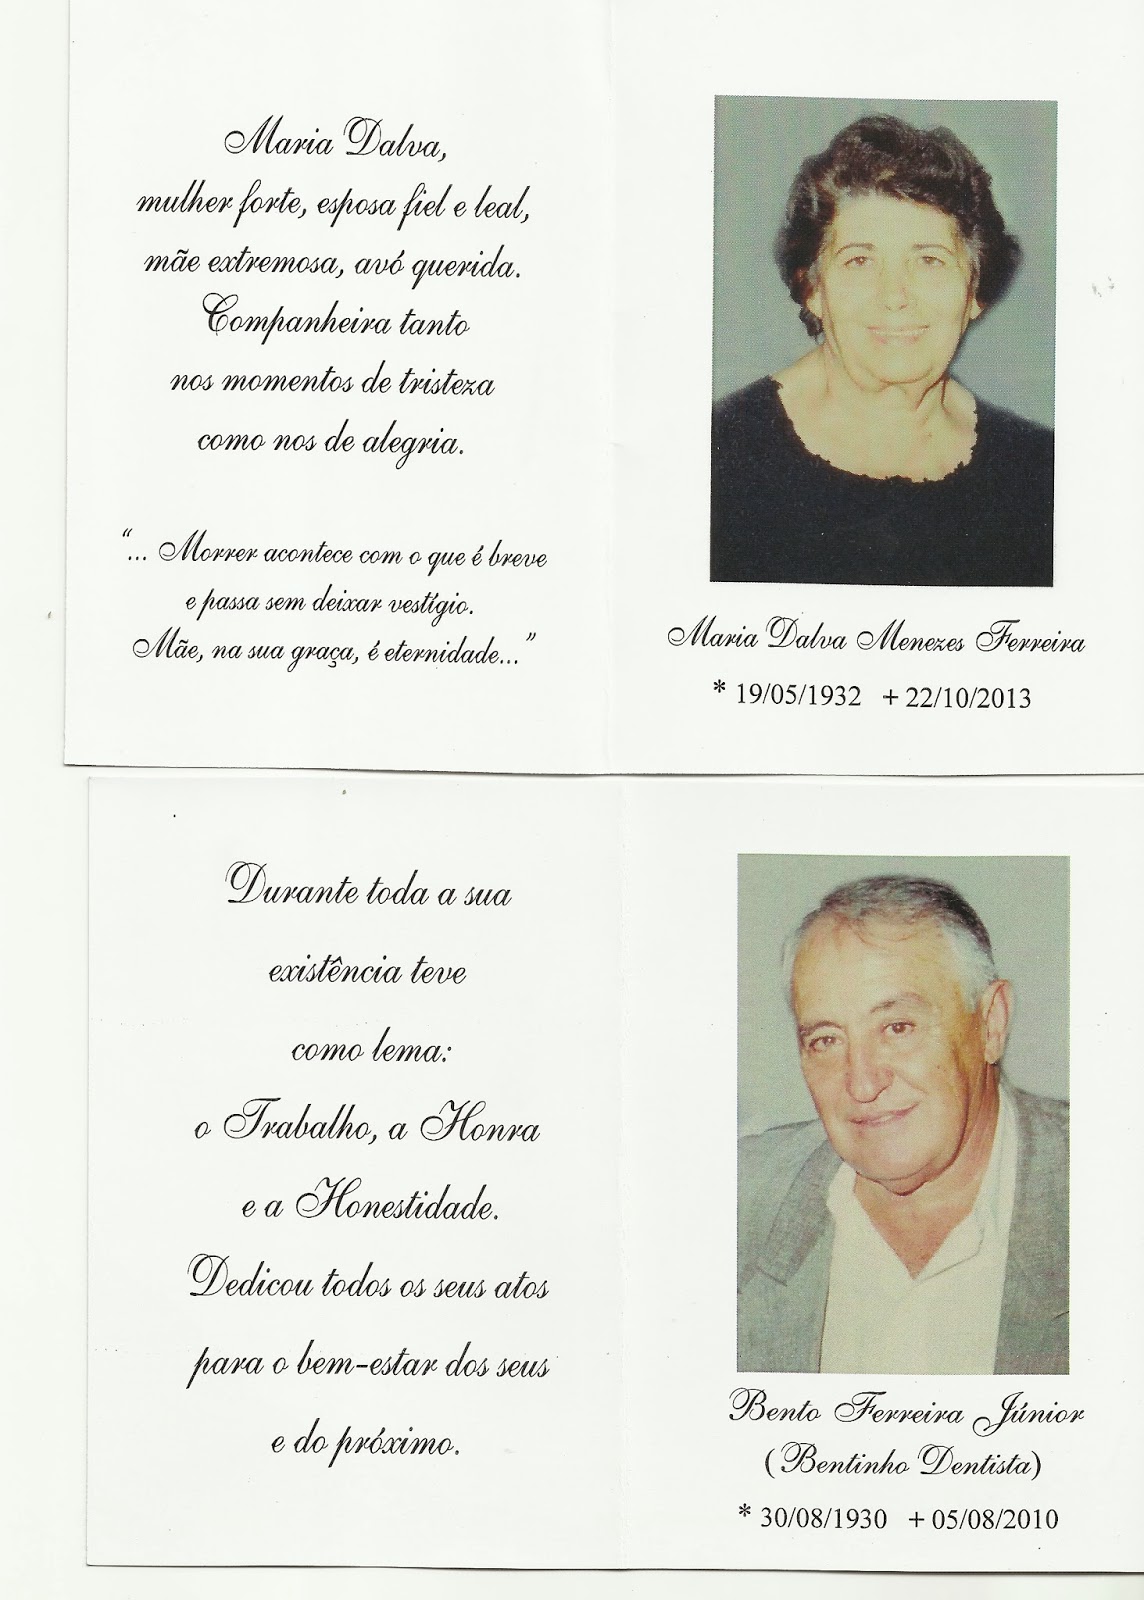 Maria Dalva,
mulher forte, esposa fiel e leal,
mãe extremosa, avó querida.
Companheira tanto
nos momentos de tristeza
como nos de alegria.
“... Morrer acontece com o que é breve
e passa sem deixar vestígio.
Mãe, na sua graça, é eternidade...”
Maria Dalva Menezes Ferreira
* 19/05/1932 + 22/10/2013
Durante toda a sua
existência teve
como lema:
o Trabalho, a Honra
e a Honestidade.
Dedicou todos os seus atos
para o bem-estar dos seus
e do próximo.
Bento Ferreira Júnior
(Bentinho Dentista)
* 30/08/1930 + 05/08/2010